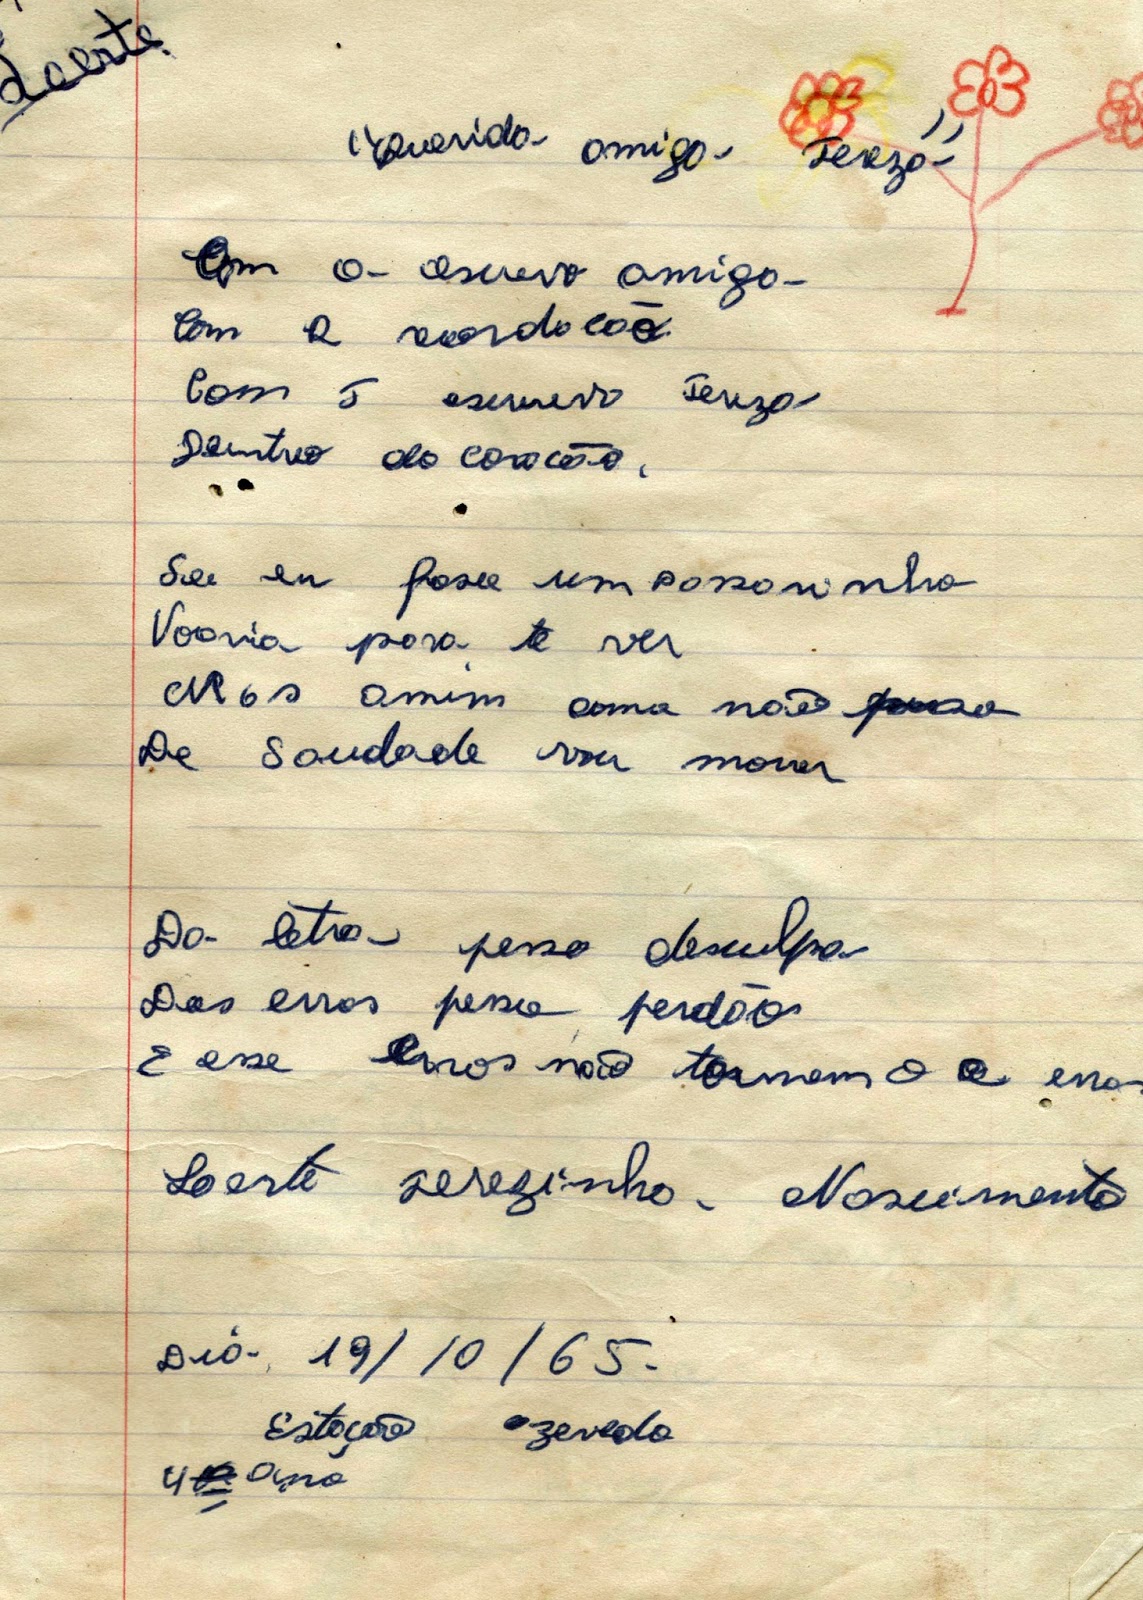 Laerte
"Querida amiga Tereza"
Com a escrevo amiga
Com R recordacõe
Com T escrevo Tereza
Dentro do coracão.
See eu fose um passarinho
Voaria para te ver
Mas amim coma não poso
De Saudade vou morer
Da letra pesso desculpa
Dos erros pesso perdão
E esse erros não tornem o a erra
Laerte Terezinha Nascimento
Dia 19/10/65.
Estação azevedo
4º Ano